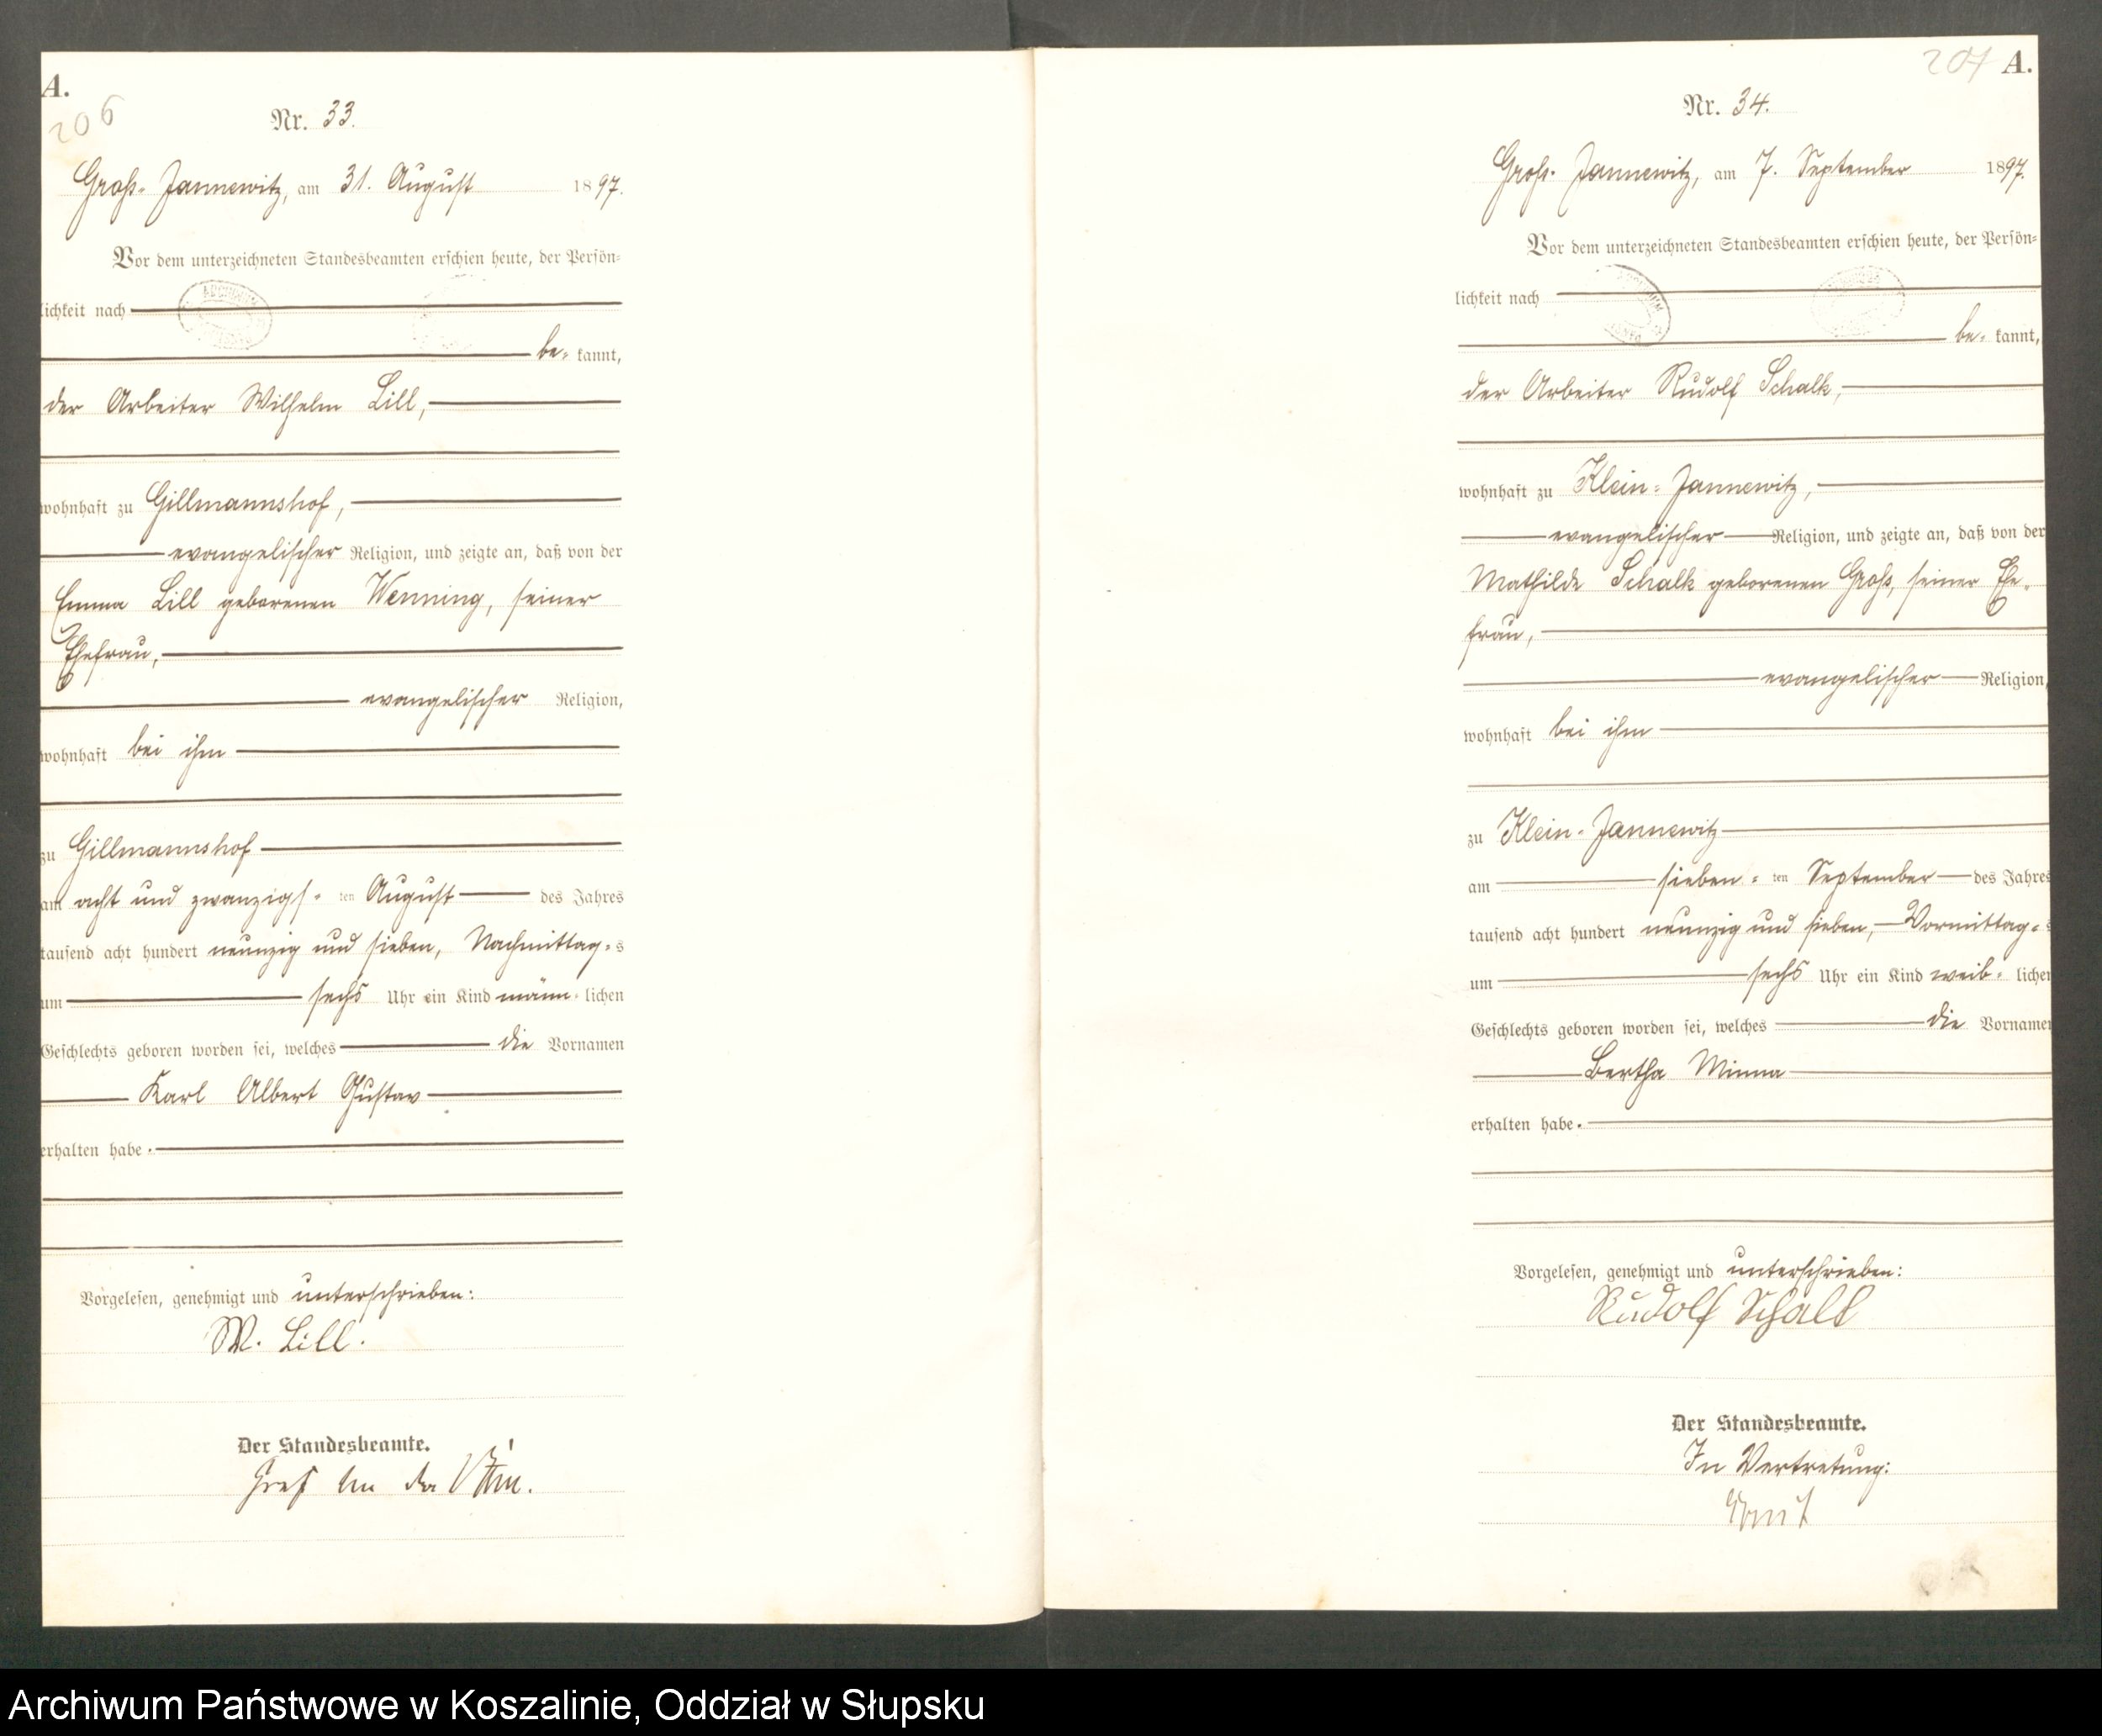 A.
206
Nr. 33.
Groß-Jannewitz, am 31. August 1897.
Vor dem unterzeichneten Standesbeamten erschien heute, der Persön-
lichkeit nach
be- kannt,
der Arbeiter Wilhelm Lill,
wohnhaft zu Gillmannshof,
evangelischer Religion, und zeigte an, daß von der
Emma Lill geborenen Wenning, seiner
Ehefrau,
evangelischer Religion,
wohnhaft bei ihm
zu Gillmannshof
am acht und zwanzigs-ten August des Jahres
tausend acht hundert neunzig und sieben, Nachmittag-s
um sechs Uhr ein Kind männ-lichen
Geschlechts geboren worden sei, welches die Vornamen
Karl Albert Gustav
erhalten habe.
Vorgelesen, genehmigt und unterschrieben:
W. Lill.
Der Standesbeamte.
Graf
207 A.
Nr. 34.
Groß-Jannewitz, am 7. September 1897.
Vor dem unterzeichneten Standesbeamten erschien heute, der Persön-
lichkeit nach
be- kannt,
der Arbeiter Rudolf Schalk,
wohnhaft zu Klein-Jannewitz,
evangelischer Religion, und zeigte an, daß von der
Mathilde Schalk geborenen Groß, seiner Ehe-
frau,
evangelischer Religion,
wohnhaft bei ihm
zu Klein-Jannewitz
am sieben-ten September des Jahres
tausend acht hundert neunzig und sieben, Vormittag-s
um sechs Uhr ein Kind weib-lichen
Geschlechts geboren worden sei, welches die Vornamen
Bertha Minna
erhalten habe.
Vorgelesen, genehmigt und unterschrieben:
Rudolf Schalk
Der Standesbeamte.
In Vertretung:
Archiwum Państwowe w Koszalinie, Oddział w Słupsku